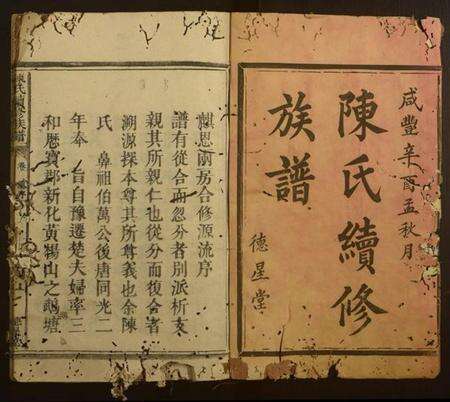 咸豐辛酉孟秋月
陳氏續修
族譜
德星堂
麒恩兩房合修源流序
譜有從合而忽分者別派析支
親其所親仁也從分而復合者
溯源探本尊其所尊義也余陳
氏 鼻祖伯萬公後唐同光二
年奉 旨自豫遷楚夫婦率三
和歷寶郡新化黃楊山之鵝塘
陳氏續修族譜
卷